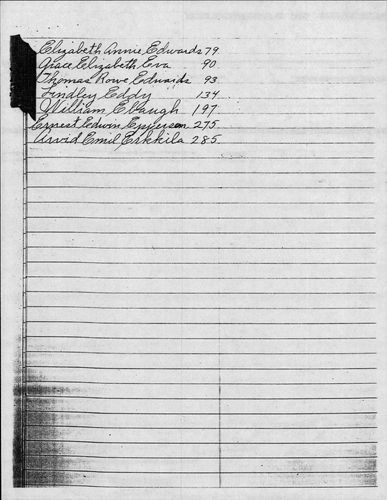 Elizabeth Annie Edwards 79
Grace Elizabeth Eva 90
Thomas Rowe Edwards 93
Findley Eddy 134
William Ebaugh 197
Ernest Edwin Epperson 275
Arvid Emil Erkkila 285